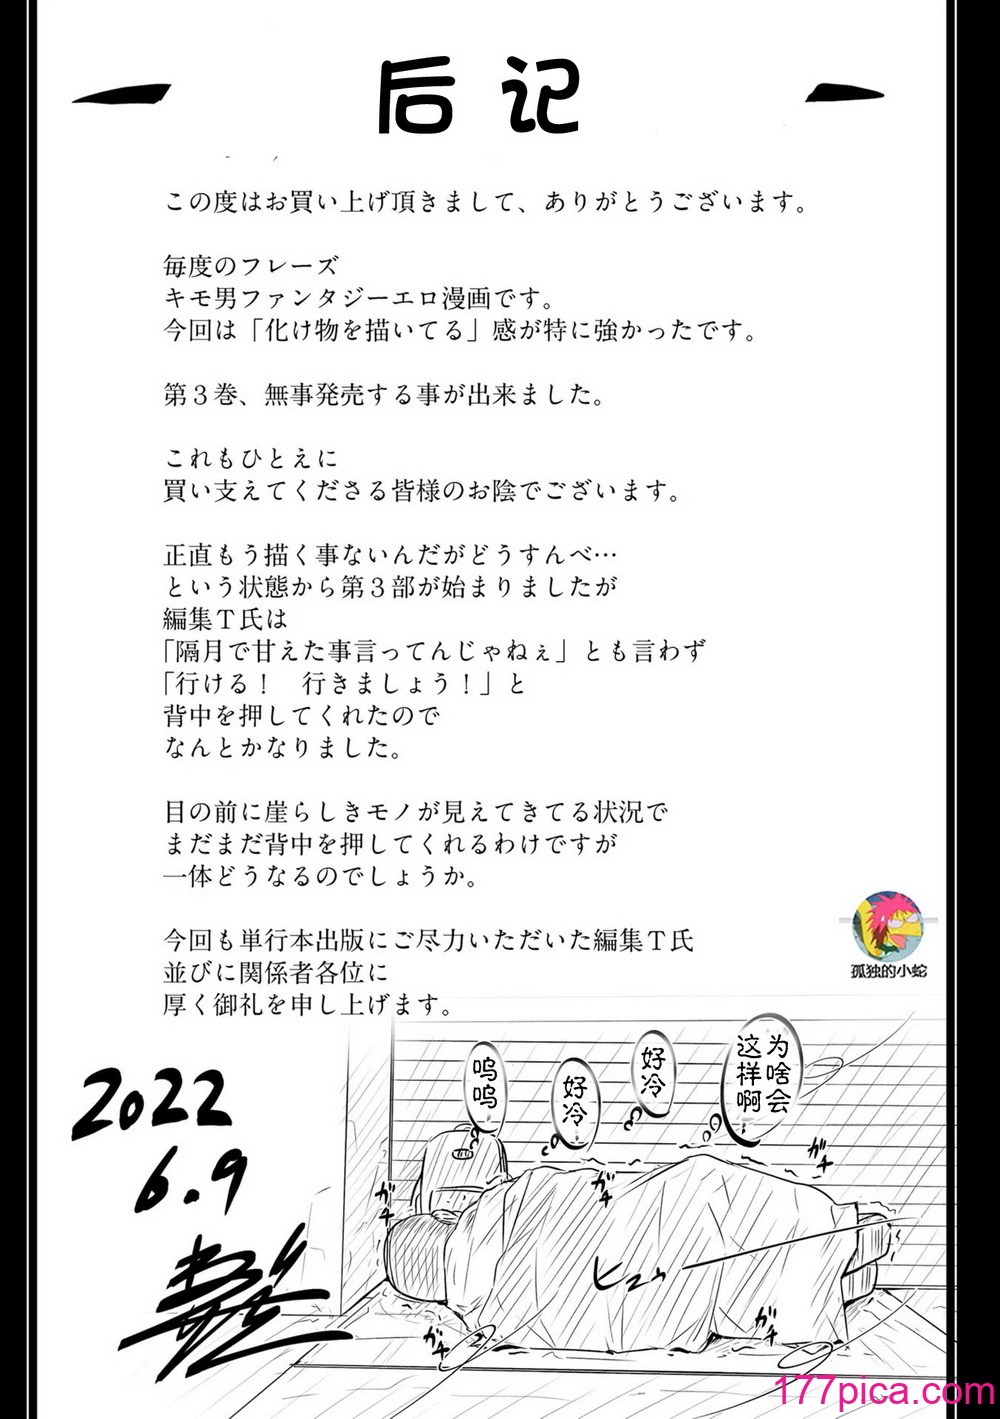 后记
この度はお買い上げ頂きまして、ありがとうございます。
毎度のフレーズ
キモ男ファンタジーエロ漫画です。
今回は「化け物を描いてる」感が特に強かったです。
第３巻、無事発売する事が出来ました。
これもひとえに
買い支えてくださる皆様のお陰でございます。
正直もう描く事ないんだがどうすんべ…
という状態から第３部が始まりましたが
編集Ｔ氏は
「隔月で甘えた事言ってんじゃねぇ」とも言わず
「行ける！　行きましょう！」と
背中を押してくれたので
なんとかなりました。
目の前に崖らしきモノが見えてきてる状況で
まだまだ背中を押してくれるわけですが
一体どうなるのでしょうか。
今回も単行本出版にご尽力いただいた編集Ｔ氏
並びに関係者各位に
厚く御礼を申し上げます。
孤独的小蛇
为啥会
这样啊
好冷
好冷
呜呜
2022
6.9
ガチ
ガチ
ガチ
ヒュゥ
ガチ
ガチ
177pica.com